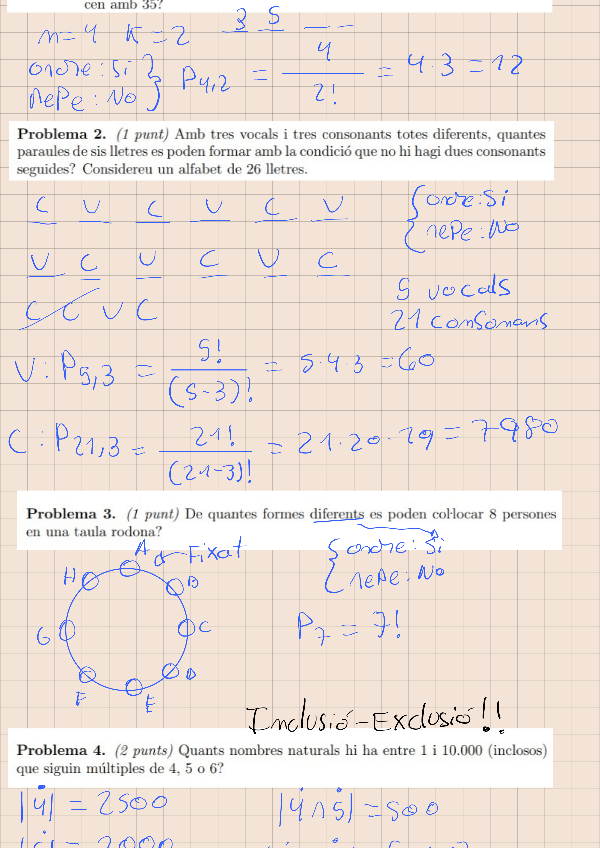 cen amb 35?
n=4 K=2 3 5
ordre: Sí
repe: No } P4,2 = 4 / 2! = 4·3 = 12
Problema 2. (1 punt) Amb tres vocals i tres consonants totes diferents, quantes
paraules de sis lletres es poden formar amb la condició que no hi hagi dues consonants
seguides? Considereu un alfabet de 26 lletres.
C V C V C V
{ ordre: Sí
repe: No
V C V C V C
5 vocals
C C V C
21 consonans
V: P5,3 = 5! / (5-3)! = 5·4·3 = 60
C: P21,3 = 21! / (21-3)! = 21·20·19 = 7980
Problema 3. (1 punt) De quantes formes diferents es poden col·locar 8 persones
en una taula rodona?
A ← Fixat
{ ordre: Sí
repe: No
H B
G C
P7 = 7!
F E D
Inclusió-Exclusió!!
Problema 4. (2 punts) Quants nombres naturals hi ha entre 1 i 10.000 (inclosos)
que siguin múltiples de 4, 5 o 6?
|4̇| = 2500 |4̇∩5̇| = 500